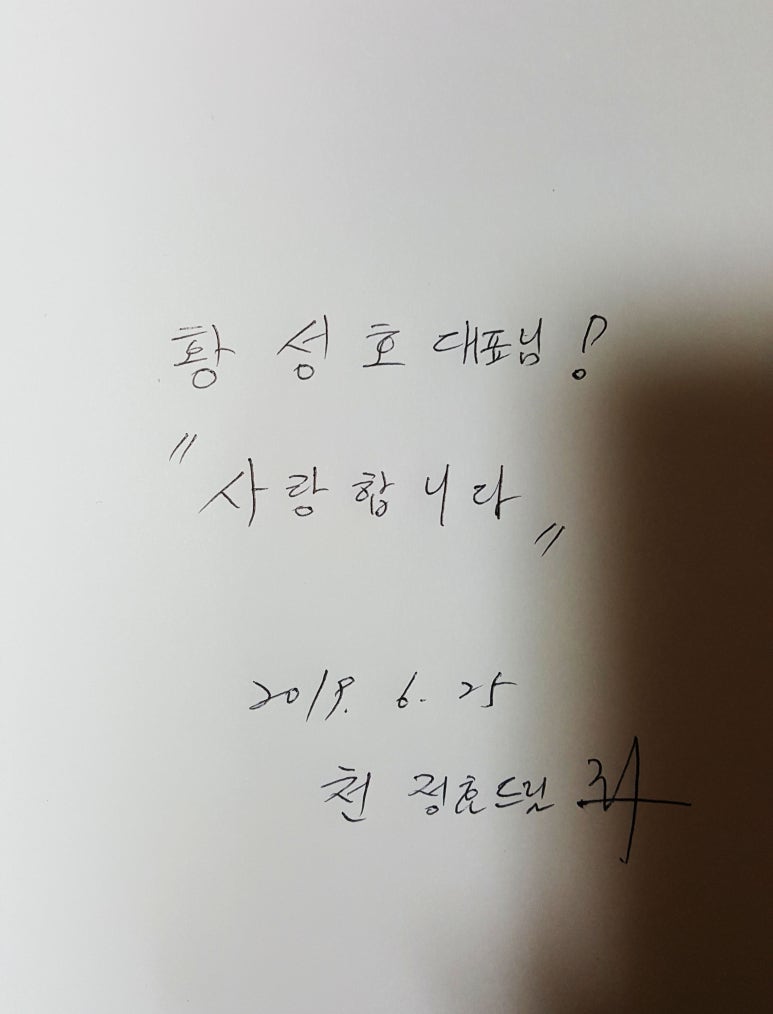 황 성 호 대표님!
"사랑합니다"
2019. 6. 25
천 정호드림